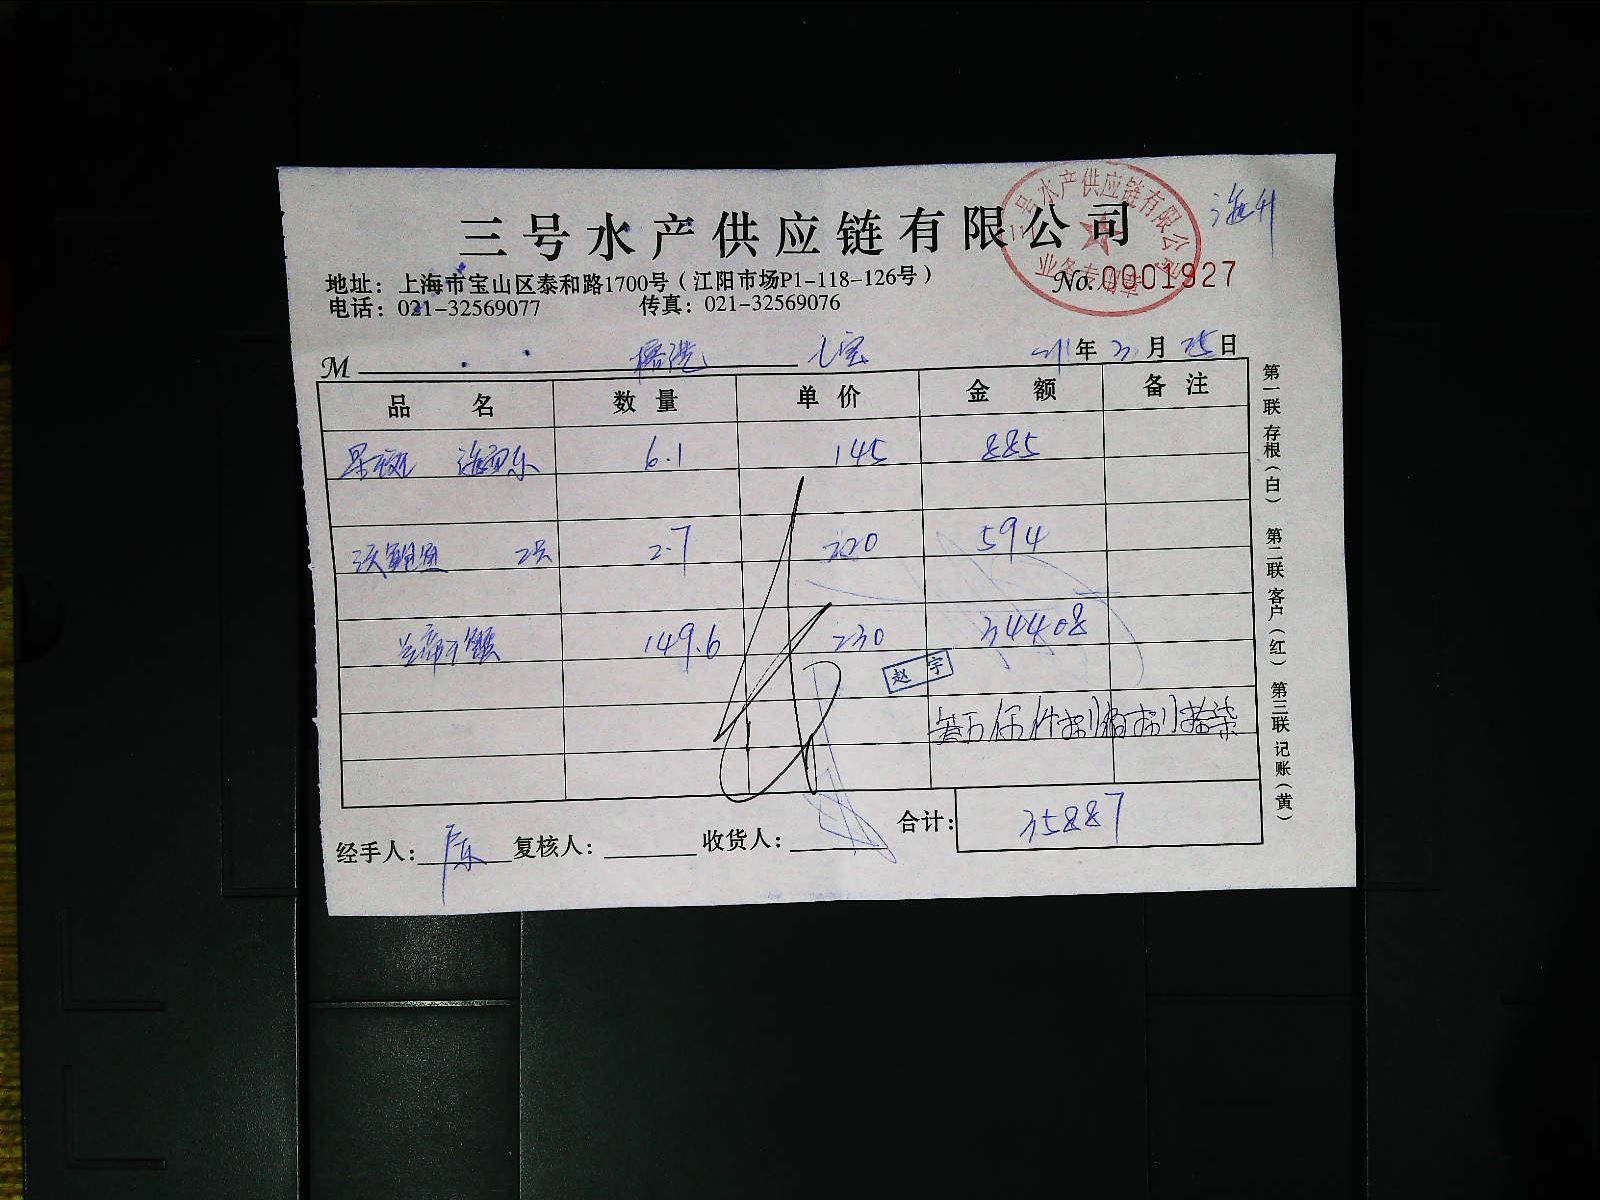 三号水产供应链有限公司
三号水产供应链有限公司
业务专用章
地址：上海市宝山区泰和路1700号（江阳市场P1-118-126号）
No.0001927
电话：021-32569077 传真：021-32569076
M 七宝 年 3月 25日
品名 数量 单价 金额 备注
6.1 145 885
鲍鱼 2.7 220 594
149.6 230 34408
赵宇
合计：35887
经手人： 复核人： 收货人：
第一联 存根（白） 第二联 客户（红） 第三联 记账（黄）